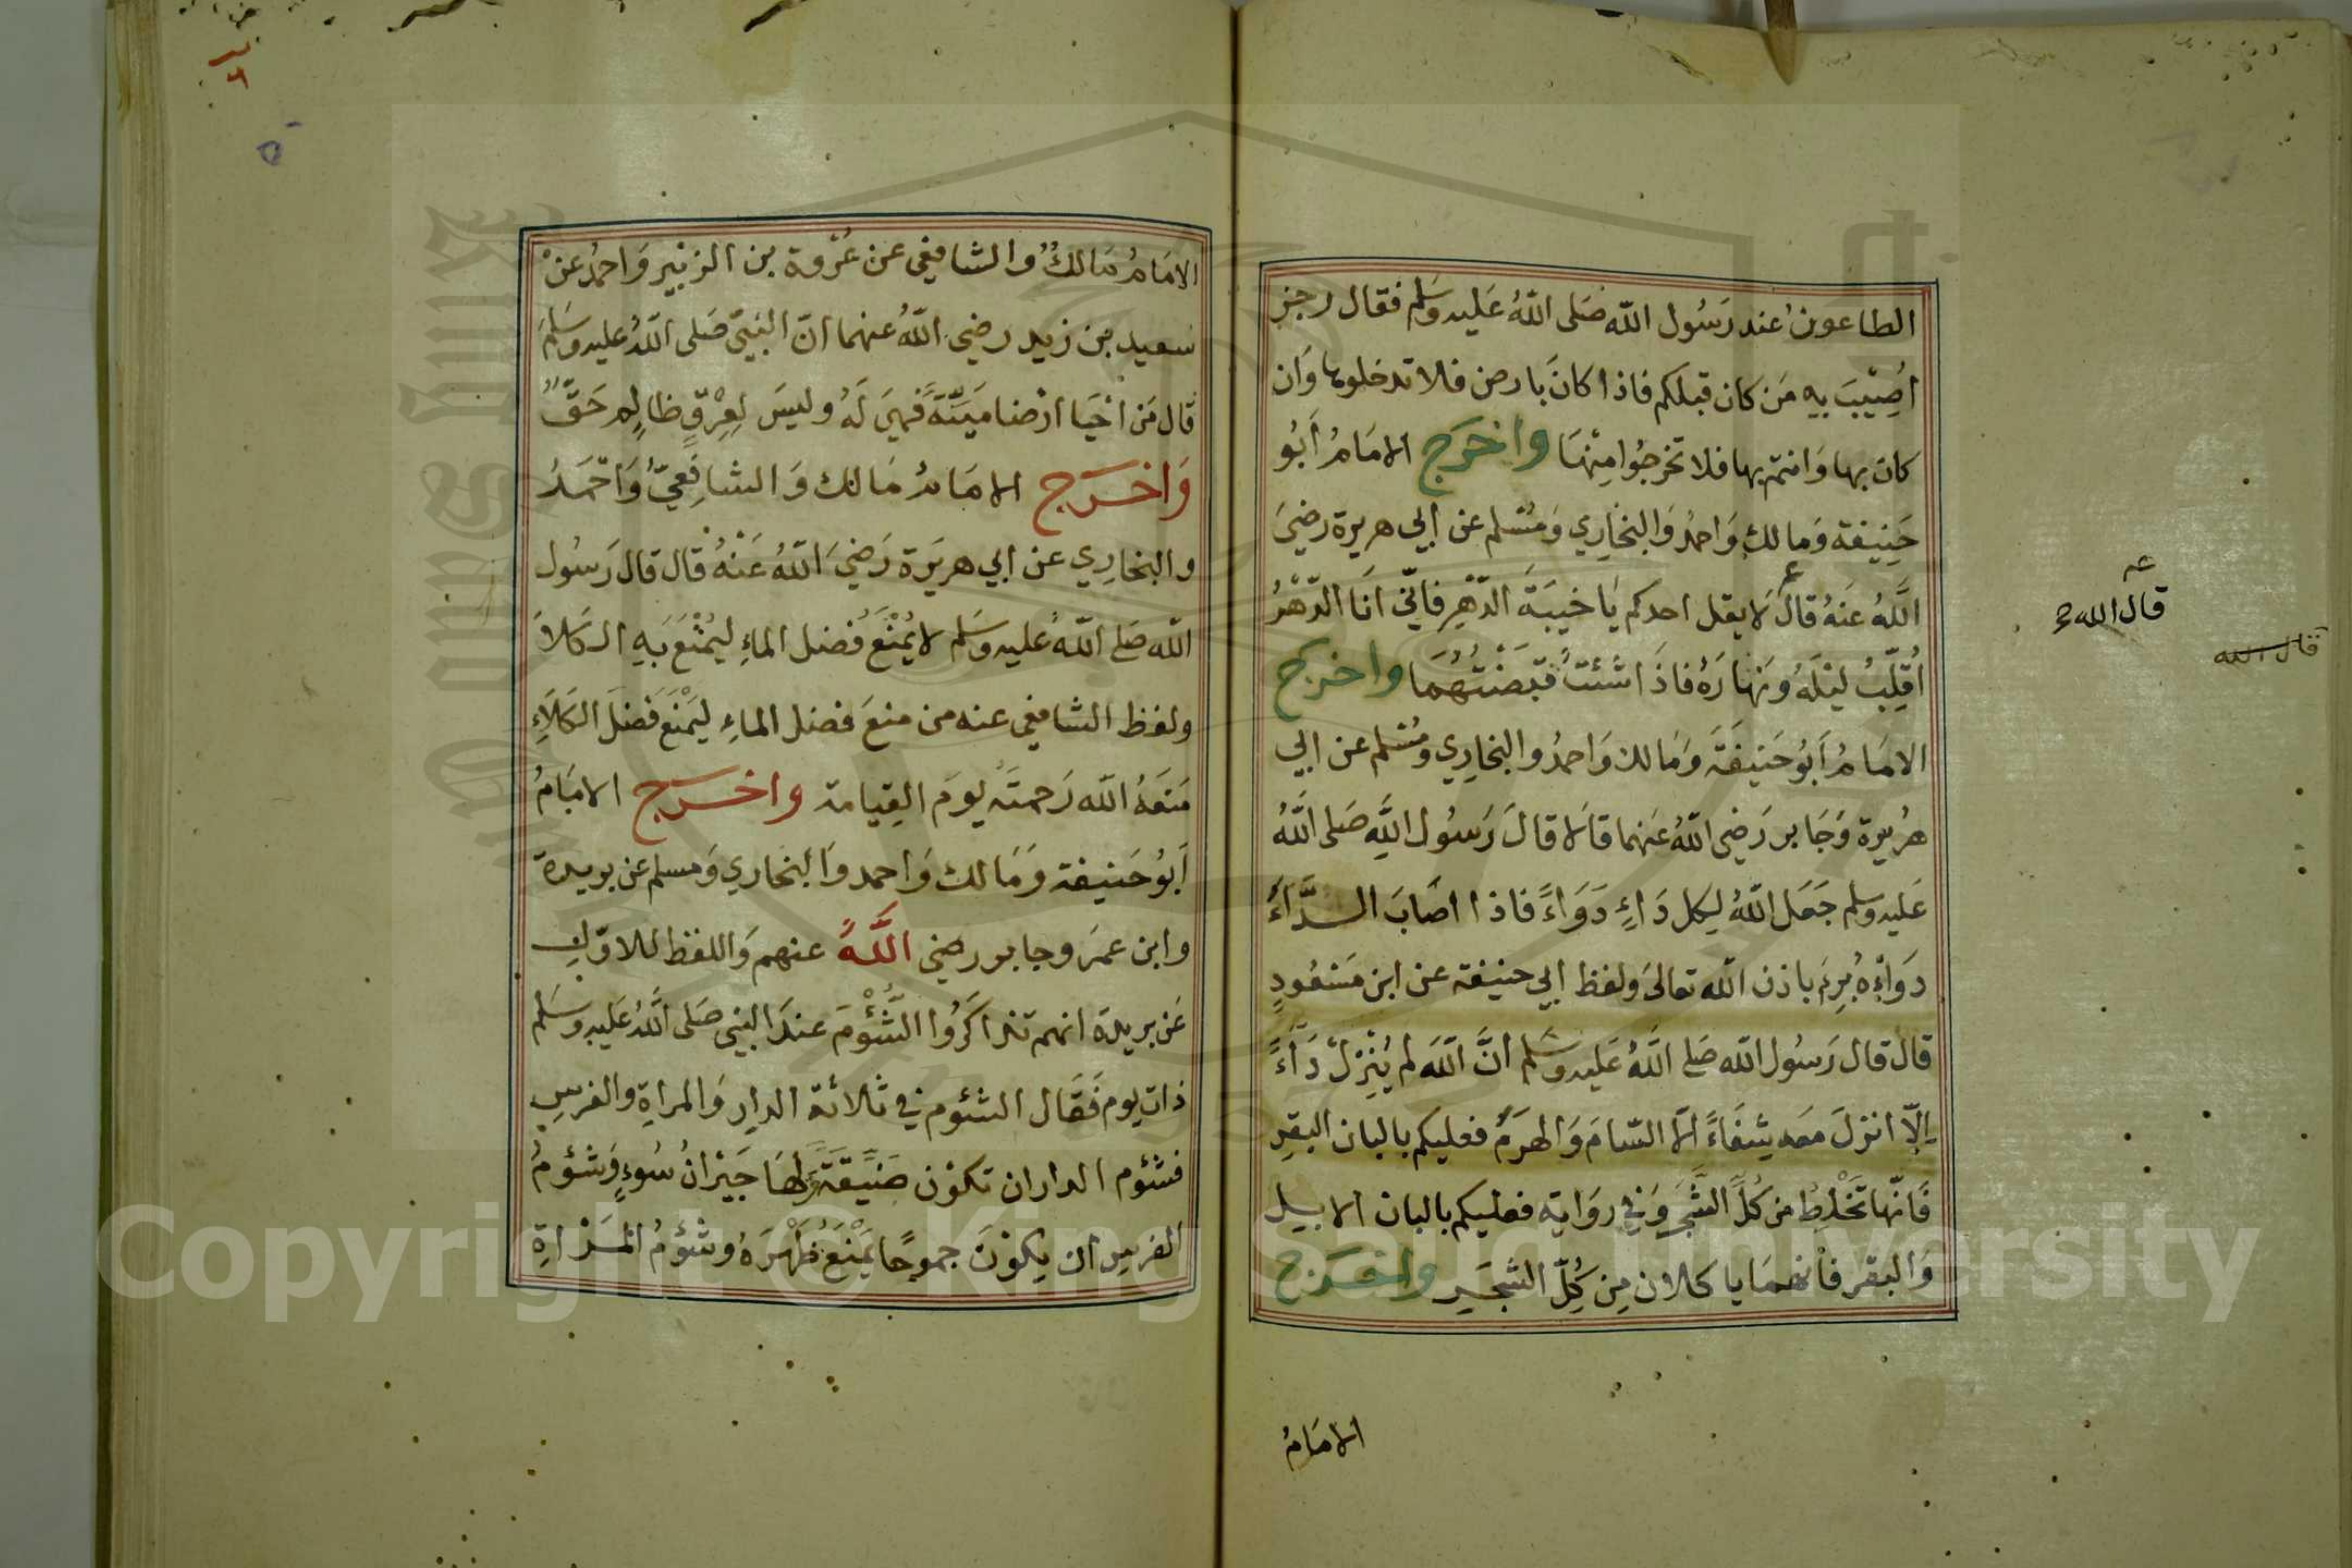 الطاعون عند رَسُول الله صَلى اللهُ عَليه وسَلم فقال رجز
اُصِيْبَ بِهِ مَن كان قبلكم فاذا كانَ بارض فلا تدخلوها وَان
كان بها وَانتم بها فلا تخرجُوا مِنْهَا واخرَج الامَامُ أبُو
حَنِيفة وَمالك وَاحمدُ وَالبخَارِي وَمُسْلم عن أبي هريرة رضيَ
اللهُ عَنهُ قالَ لَا يقل احدكم يَا خيبَةَ الدّهْرِ فاَنّي اَنَا الدّهْرُ
اُقلِّبُ ليْلَهُ وَنهَارَهُ فاذَا شئتُ قَبَضْتُهُمَا واخرج
الامَامُ أبُو حَنيفَةَ وَمَالك وَاحمدُ والبخارِي ومُسْلم عن ابي
هُريرة وَجَابر رَضِي اللهُ عَنهما قاَلا قالَ رَسُول اللهِ صَلى اللهُ
عَليه وسلم جَعَل اللهُ لِكل دَاءٍ دَوَاءً فاذا اصَابَ الدَّاءَ
دوَاؤهُ بُرِئَ باذن الله تعالىَ ولفظ ابي حنيفة عن ابن مَسْعُودٍ
قال قال رَسُول الله صَلى اللهُ عَليه وسَلم انَّ اللهَ لم يُنْزِلْ دَاءً
اِلّا انزلَ مَعه شِفَاءً اِلّا السّامَ وَالهرَمَ فعليكم بالبان البقرِ
فَانّها تَخْلِطُ من كُلِّ الشَّجَرِ وَفي روَاية فعليكم بالبان الابيل
وَالبقر فانهمَا ياكلان مِن كُلِّ الشجَرِ واخرج
الامَامُ
قال الله
قال الله
الامَامُ مَالكُ وُالشافِعِي عن عُرْوة بن الزبَيْر وَاحمدُ عَنْ
سَعيد بن زيد رضي اللهُ عنهما انّ النبيّ صَلى اللهُ عليه وسَلمَ
قَال مَن احْيَا ارْضا مَيتّةً فَهيَ لَهُ وليسَ لِعِرْقٍ ظالِم حَقٌّ
وَاخرَج الامَامُ مَالك وَالشافِعيُّ وَاَحْمَدُ
والبخارِي عن ابي هريَرة رَضيَ اللهُ عَنْهُ قال قال رَسُول
الله صَلى اللهُ عليه وسَلم لا يُمْنَعُ فَضل الماءِ ليُمْنَعَ بَهِ الكَلاَ
ولفظ الشافعي عنه من منعَ فضل الماءِ ليَمْنَعَ فَضلَ الكَلَاءِ
مَنَعَهُ الله رَحمتَه يومَ القِيامة واخرَج الامَامُ
اَبُو حَنيفة وَمَالك وَاحمد وَالبخاري وَمسلم عن بريدة
وابن عمَر وجابر رضي اللَّهُ عنهم وَاللفظ للاوّلِ
عَن بريدة انهم تذاكَرُوا الشُّؤْمَ عندَ النبي صَلى اللهُ عَليه وسَلم
ذات يوم فَقَال الشئوم في ثلاثة الدار وَالمراةِ والفرسِ
فشئوم الدار ان تكوْن ضَيِّقَةً وَلهَا جَيْرَانُ سُوءٍ وَشئومُ
الفرسِ ان يكوْنَ جموحًا يَمْنَعُ ظَهْرَهُ وشئومُ المَرْاةِ
Copyright © King Saud University